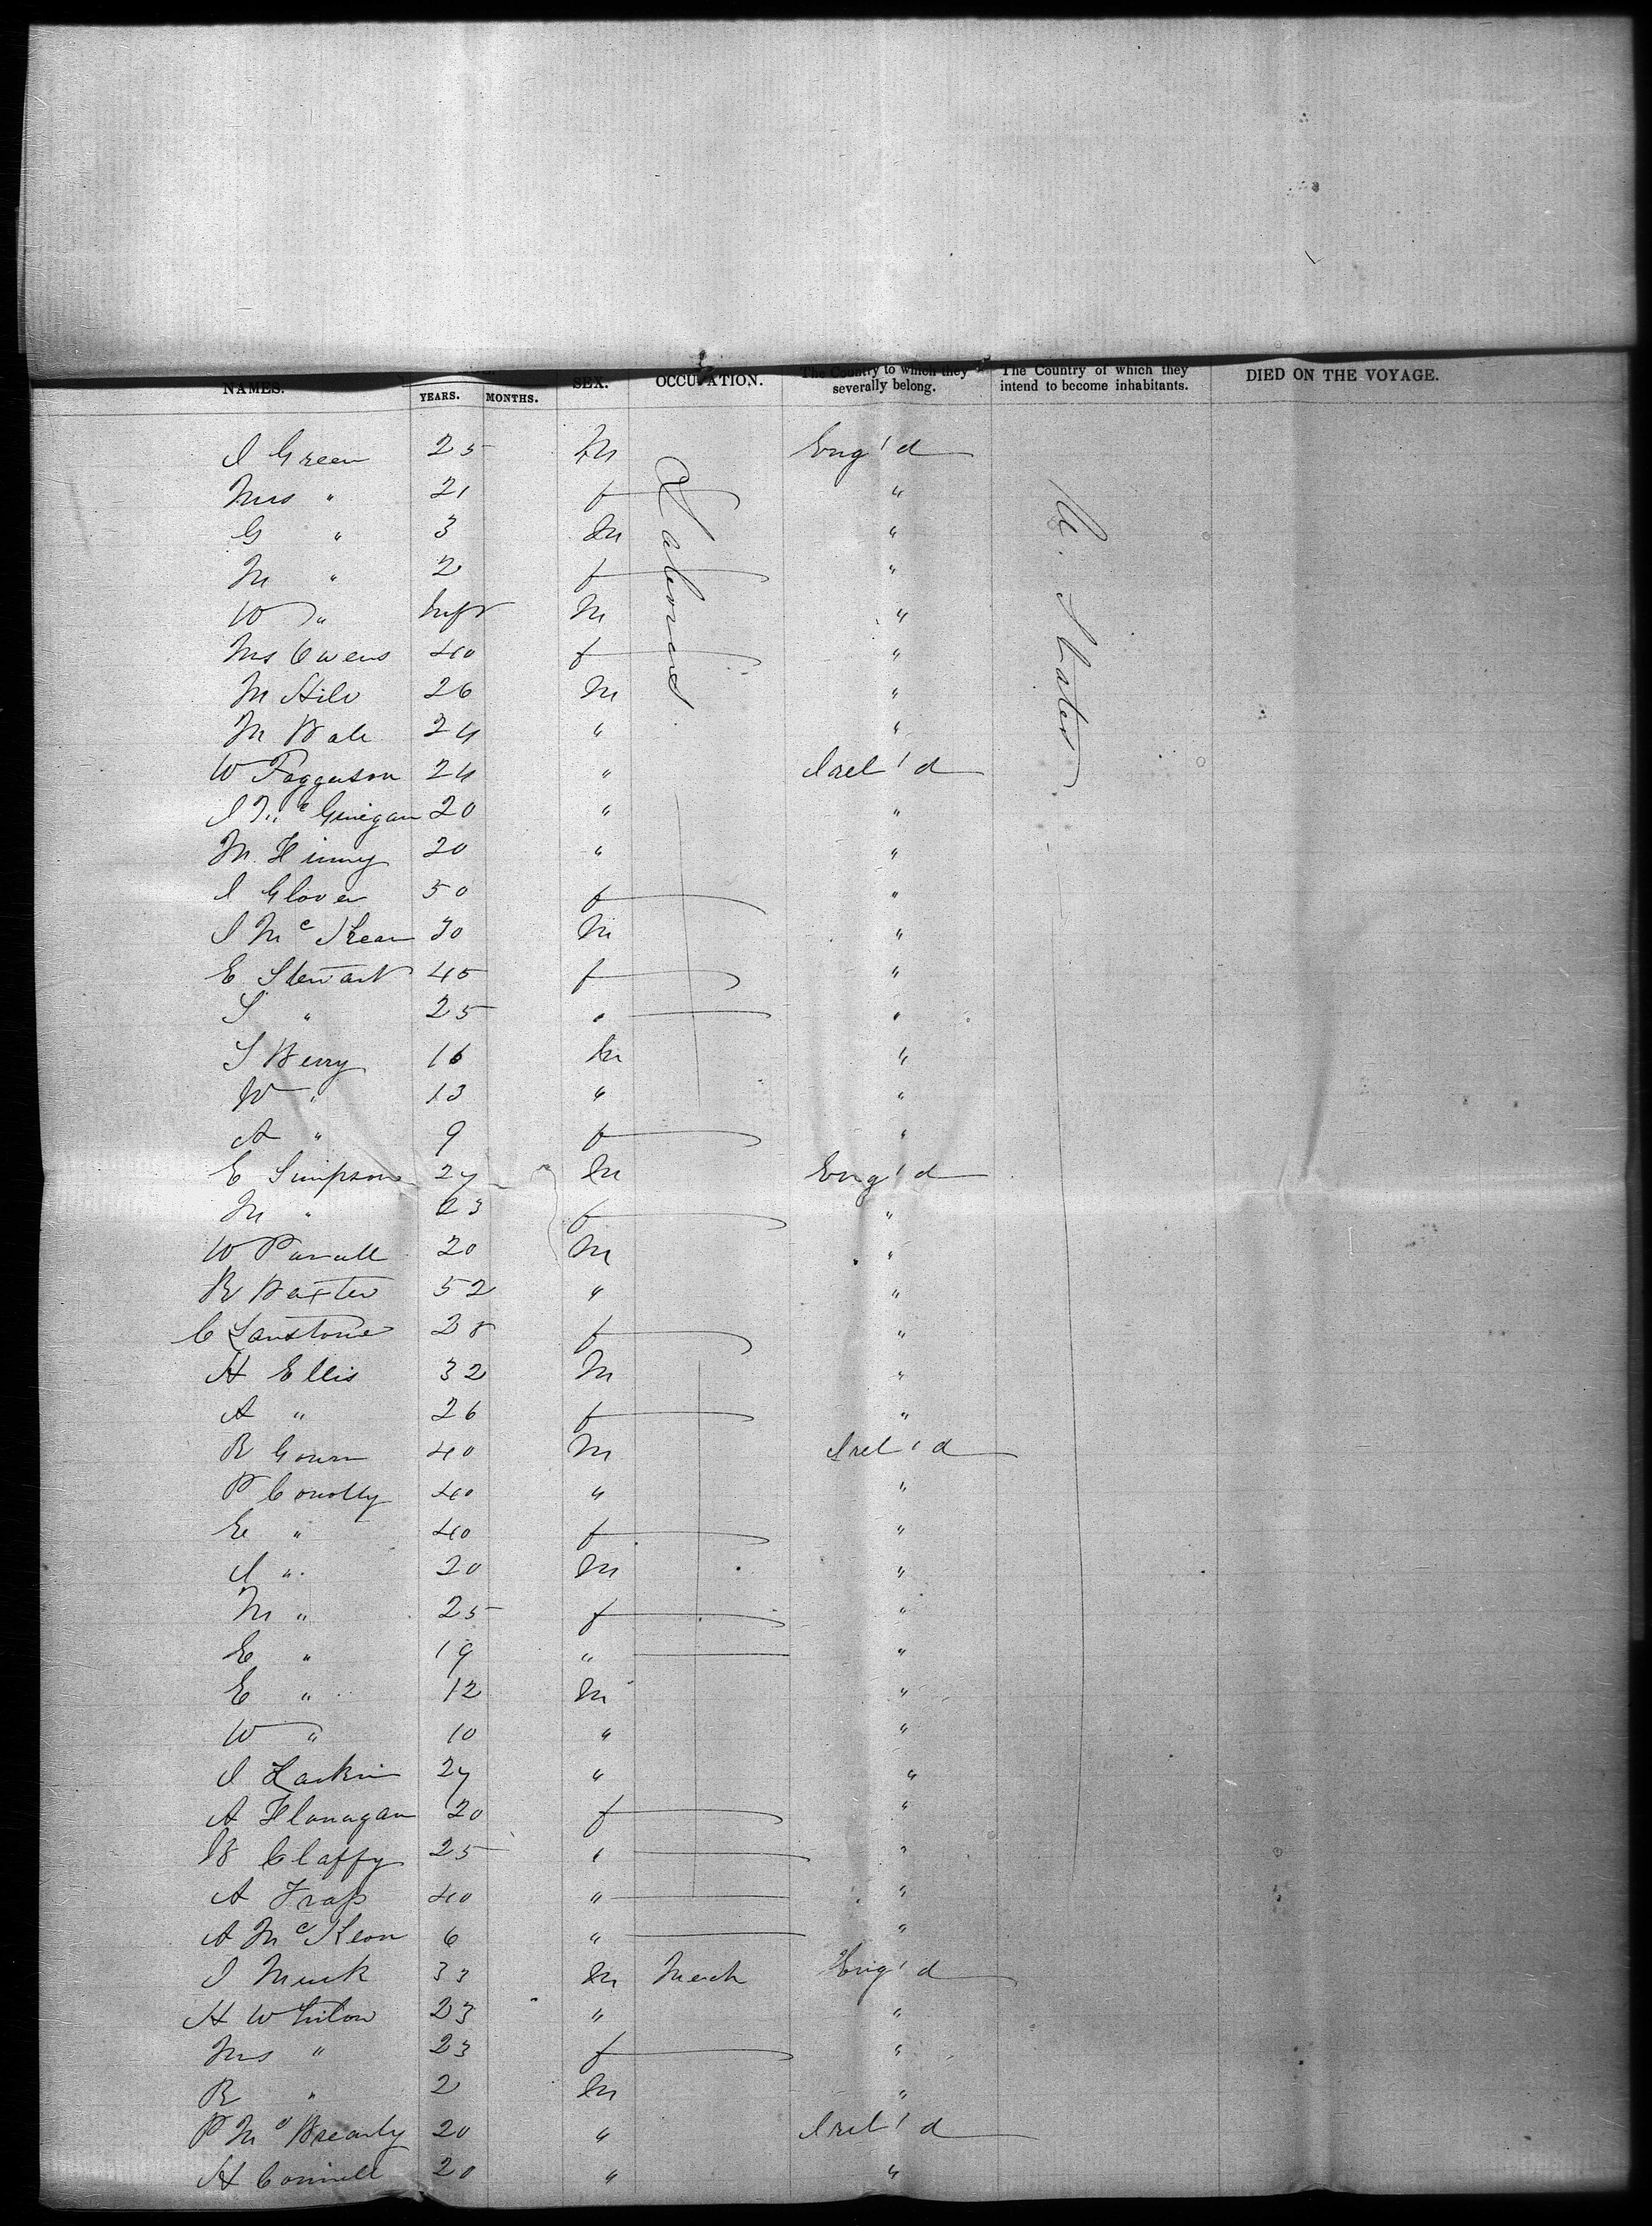 NAMES. YEARS. MONTHS. SEX. OCCUPATION. The Country to which they severally belong. The Country of which they intend to become inhabitants. DIED ON THE VOYAGE.
I Green 25 M Eng'd
Mrs " 21 f "
G " 3 M "
M " 2 f "
W " Inft M "
Mrs Owens 40 f "
M 26 M "
M 24 " "
W Fogguson 24 " Irel'd
I Mc Ginigan 20 " "
M 20 " "
I Glover 50 f "
I Mc Kean 30 M "
E Stewart 45 f "
S " 25 " "
S Berry 16 M "
W " 13 " "
A " 9 f "
E Simpson 27 M Eng'd
M " 23 f "
W 20 M "
R Baxter 52 " "
C 28 f "
H Ellis 32 M "
A " 26 f "
R 40 M Irel'd
P Conolly 40 " "
E " 40 f "
I " 20 M "
M " 25 f "
E " 19 " "
E " 12 M "
W " 10 " "
I Larkin 27 " "
A Flanagan 20 f "
B Claffy 25 " "
A 40 " "
A Mc Keon 6 " "
I 33 M Mech Eng'd
H 23 " "
Mrs " 23 f "
R " 2 M "
P Mc 20 " Irel'd
H Connell 20 " "
Laborers
U. States